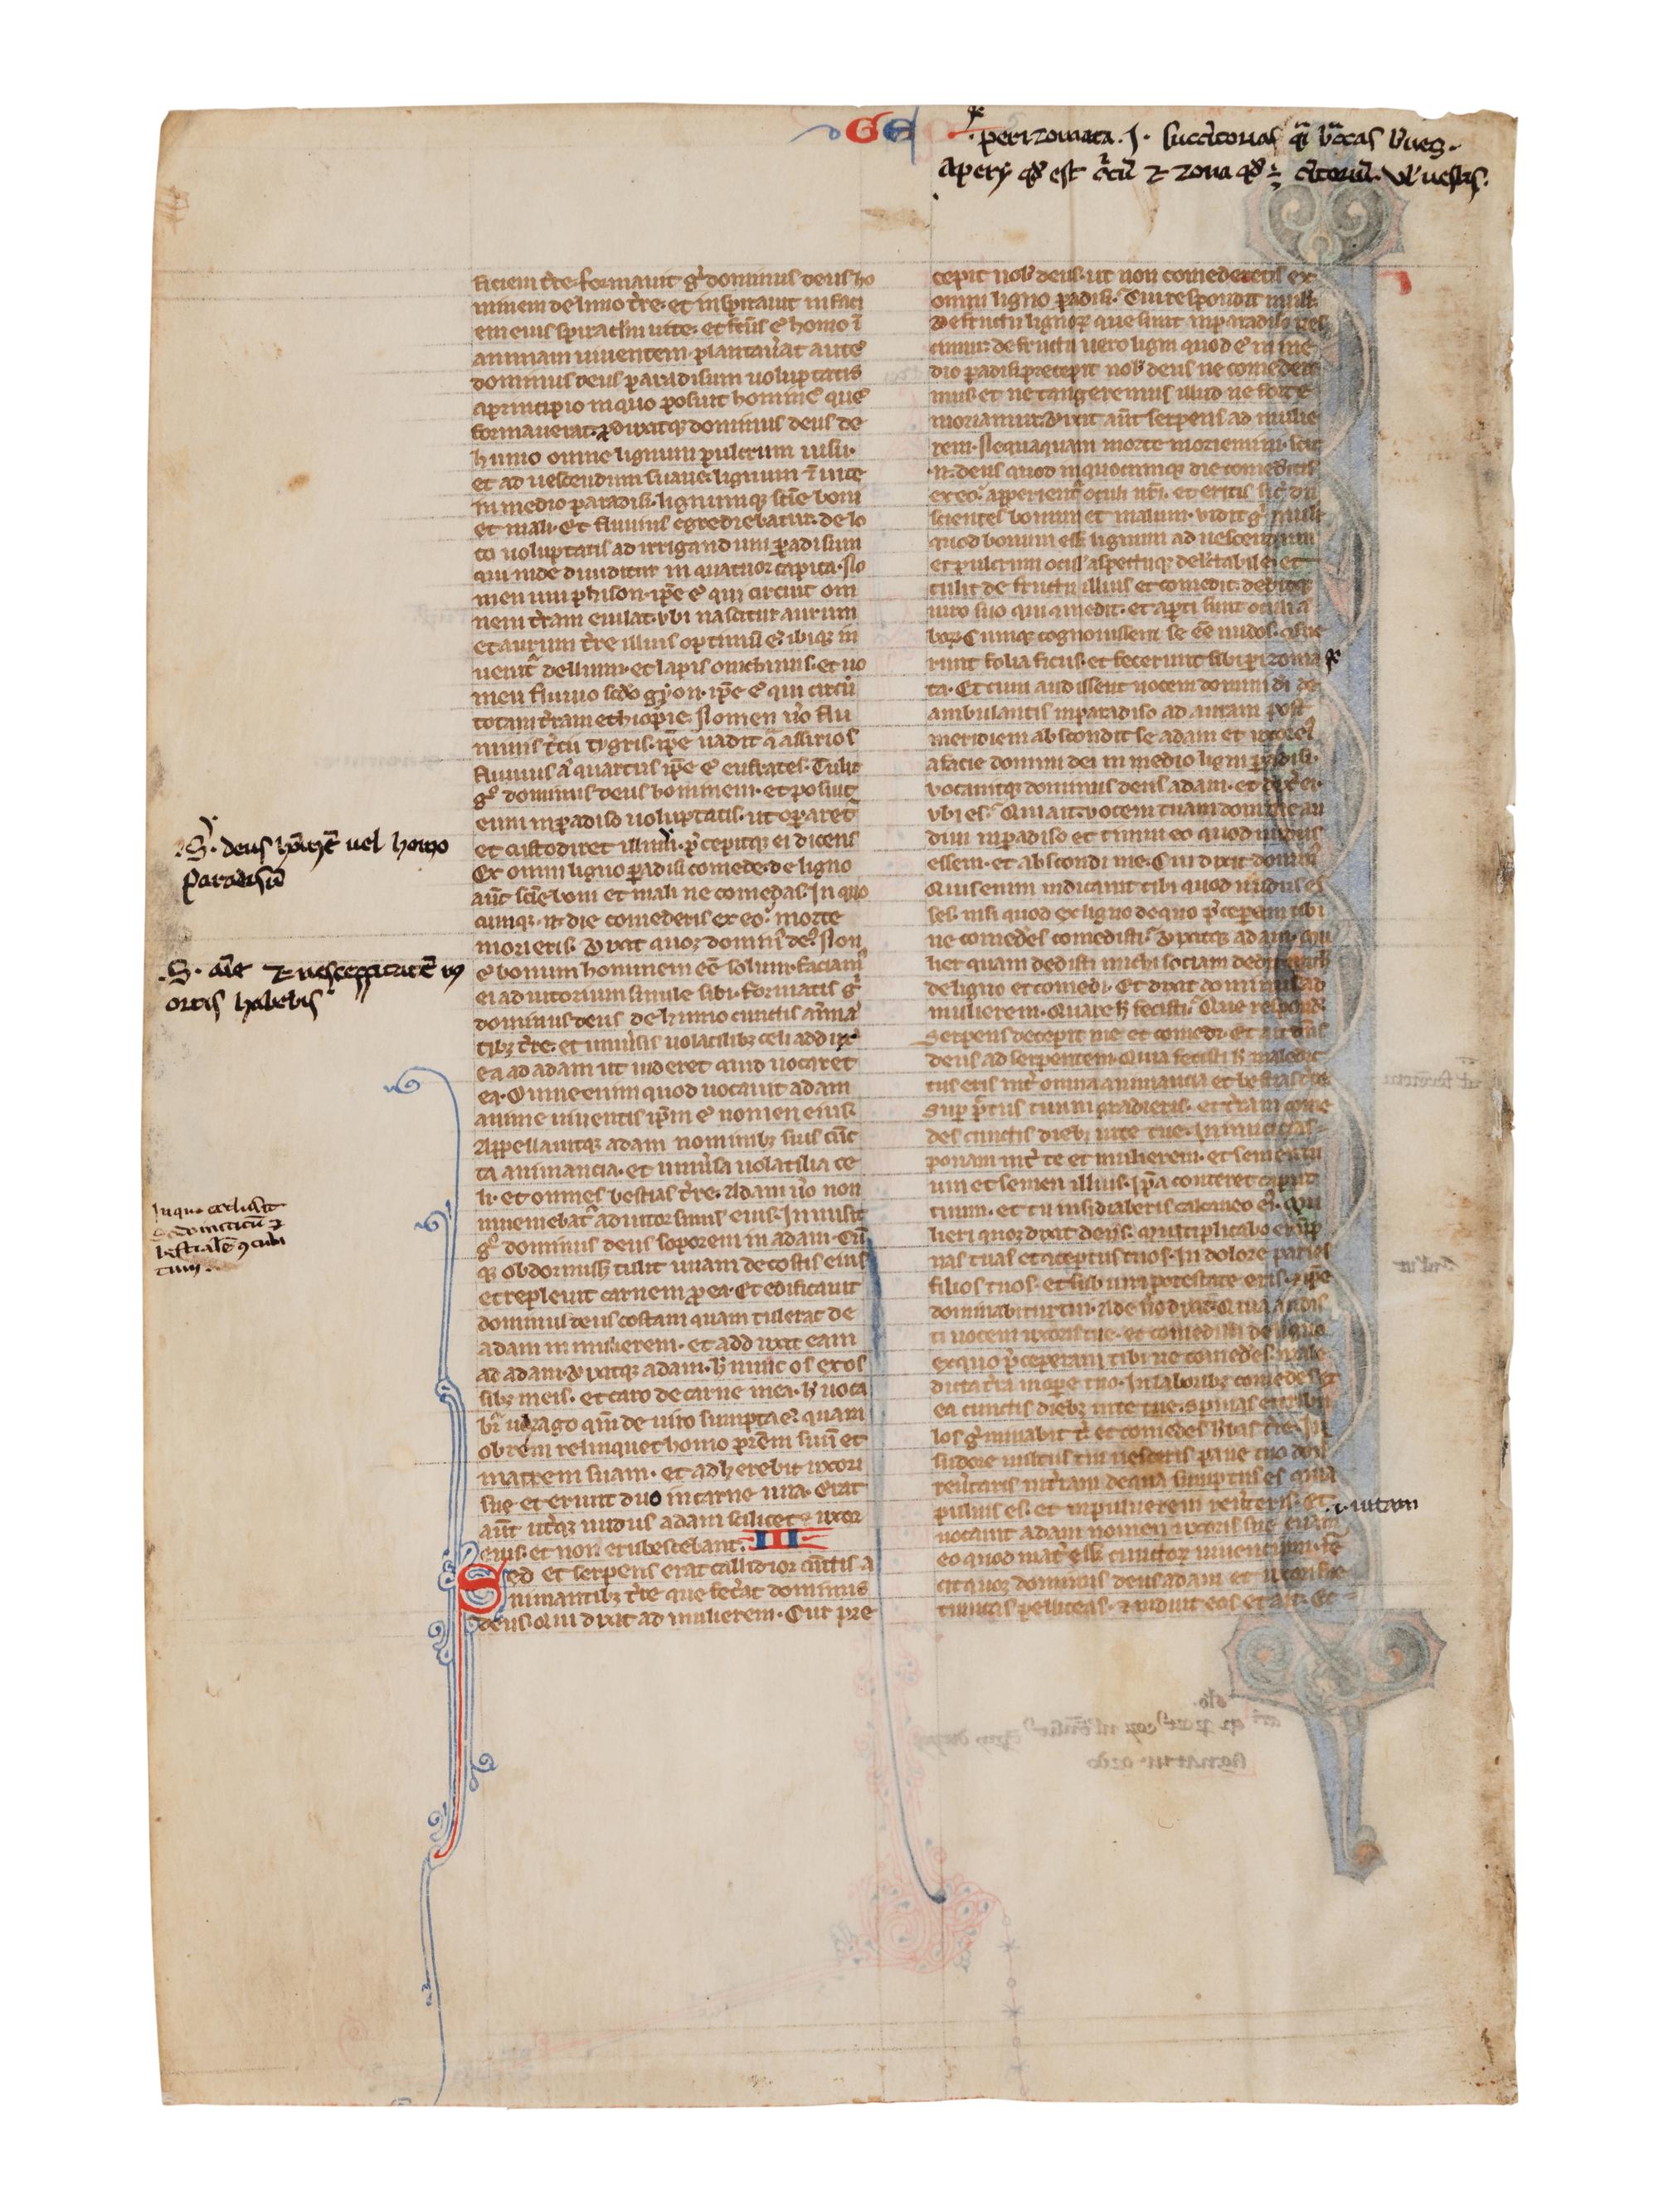 GE
perizomata .i. succītorias
apery qđ est et zona qđ vł uestis.
faciem t̄re. formauit g̊ dominus deus ho
minem de limo t̄re. et inspirauit in faci
em eius spiraclm uite. et fc̄s ē homo ī
animam uiuentem. plantau̾at aute
dominus deus paradisum uoluptatis
a principio in quo posuit homine que
formauerat. ꝓduxitqꝫ dominus deus de
humo omne lignum pulcrum uisu.
et ad uescendum suaue. lignum ē uite
in medio paradisi. lignumqꝫ scīe boni
et mali. et fluuius egrediebatur. de lo
co uoluptatis ad irrigandum ꝑadisum
qui inde diuiditur in quatuor capita. No
men uni phison. ip̄e ē qui circuit om
nem t̄ram euilat. ubi nascitur aurum
et aurum t̄re illius optimū ē. ibiqꝫ in
uenit᷑ dellium. et lapis onichinus. et no
men fluuio scd̄o gyon. ip̄e ē qui circū
totam t̄ram ethiopie. Nomen u̾o flu
minis t̄cii tygris. ip̄e uadit ɔ̄ assirios
fluuius a̾ quartus ip̄e ē eufrates. Tulit
g̊ dominus deus hominem. et posuit
eum in ꝑadiso uoluptatis. ut oꝑaret᷑
.S. deus hōīnē uel homo
paradisū
et custodiret illum. p̄cepitqꝫ ei dicens
Ex omni ligno ꝑadisi comede. de ligno
aūt scīe boni et mali ne comedas. In quo
cunqꝫ .n. die comederis ex eo. morte
morieris. Dixit quoqꝫ domin᷒ de᷒. Non
.S. aīe et necessitatē
ortis habebis
ē bonum hominem eē solum. faciam᷒
ei adiutorium simile sibi. formatis g̊
dominus deus de humo cunctis aīma
tibꝫ t̄re. et uniu̾sis uolatilibꝫ celi addux̾
ea ad adam ut uideret quid uocaret
ea. Omne enim quod uocauit adam
anime uiuentis ip̄m ē nomen eius.
Appellauitqꝫ adam nominibꝫ suis cūc
ta animancia. et uniu̾sa uolatilia ce
li. et omnes bestias t̄re. Adam u̾o non
In quo
sodomiticū
bestialē ɔcubi
tum.
inueniebat᷑ adiutor similis eius. Inmisit
g̊ dominus deus soporem in adam. cū
qꝫ obdormiss̾ tulit unam de costis eius
et repleuit carnem ꝓ ea. Et edificauit
dominus deus costam quam tulerat de
adam in mulierem. et adduxit eam
ad adam. Dixitqꝫ adam. h̾ nunc os ex os
sibꝫ meis. et caro de carne mea. h̾ uoca
br̄ uirago qm̄ de uiro sumpta ē. quam
obrem relinquet homo p̄rem suū et
matrem suam. et adherebit uxori
sue et erunt duo in carne una. Erat
aūt ut̾qꝫ nudus adam scilicet et uxor
eius. et non erubescebant. III
Sed et serpens erat callidior cūctis a
nimantibꝫ t̄re que fec̾at dominus
deus. Qui dixit ad mulierem. Cur pre
cepit nob̾ deus. ut non comederetis ex
omni ligno ꝑadisi. Cui respondit muli̾.
De fructu lignoꝝ que sunt in paradiso ues
cimur. de fructu uero ligni quod ē in me
dio ꝑadisi precepit nob̾ deus ne comedere
mus. et ne tangeremus illud ne forte
moriamur. Dixit aūt serpens ad mulie
rem. Nequaquam morte moriemini. scit
.n. deus quod in quocumqꝫ die comeditis
ex eo. apperient᷑ oculi ur̄i. et eritis sic̾ dii
scientes bonum et malum. uidit g̊ muli̾
quod bonum ess̾ lignum ad uescendum
et pulcrum oculis aspectuqꝫ delectabile. et
tulit de fructu illius et comedit. deditqꝫ
uiro suo qui comedit. et aꝑti sunt oculi a
boꝝ. Cumqꝫ cognouissent se eē nudos. ɔsue
runt folia ficus. et fecerunt sibi perizoma
ta. Et cum audissent uocem domini di de
ambulantis in paradiso ad auram post
meridiem abscondit se adam et uxor ei᷒
a facie domini dei in medio ligni ꝑadisi.
vocauitqꝫ dominus deus adam. et dix̾ ei.
vbi es. Qui ait. uocem tuam domine au
diui in ꝑadiso et timui eo quod nudus
essem. et abscondi me. Cui dixit domin᷒
Quis enim indicauit tibi quod nudus es
ses. nisi quod ex ligno de quo p̄ceperam tibi
ne comedes comedisti. Dixitqꝫ adam. mu
lier quam dedisti michi sociam dedit mich
de ligno et comedi. Et dixit dominus ad
mulierem. Quare h̾ fecisti. Que respond̾.
Serpens decepit me et comedi. Et ait dn̄s
deus ad serpentem. Quia fecisti h̾ maledic
tus eris int̾ omnia animancia et bestias t̄re.
Sup̾ pectus tuum gradieris. et t̄ram come
des cunctis diebꝫ uite tue. Inimicitias
ponam int̾ te et mulierem. et semen tu
um et semen illius. Ip̄a conteret caput
tuum. et tu insidiaberis calcaneo ei᷒. Mu
lieri quoqꝫ dixit deus. Multiplicabo erump
nas tuas et ɔceptus tuos. In dolore paries
filios tuos. et sub uiri potestate eris. et ip̄e
dominabitur tui. Ade u̾o dixit. Quia audis
ti uocem uxoris tue. et comedisti de ligno
ex quo p̄ceperam tibi ne comedes. male
dicta t̄ra in opere tuo. In laboribꝫ comedes ex
ea cunctis diebꝫ uite tue. Spinas et tribu
los g̾minabit t̾ et comedes h̾bas t̄re. In
sudore uultus tui uesceris pane tuo don̾
reu̾taris in t̄ram de qua sumptus es. quia
puluis es. et in puluerem reu̾teris. Et
.i. uitam
uocauit adam nomen uxoris sue euam
eo quod mat̾ ess̾ cunctoꝝ uiuentium. fe
cit quoqꝫ dominus deus adam et uxori sue
tunicas pelliceas. et induit eos et ait. Ec